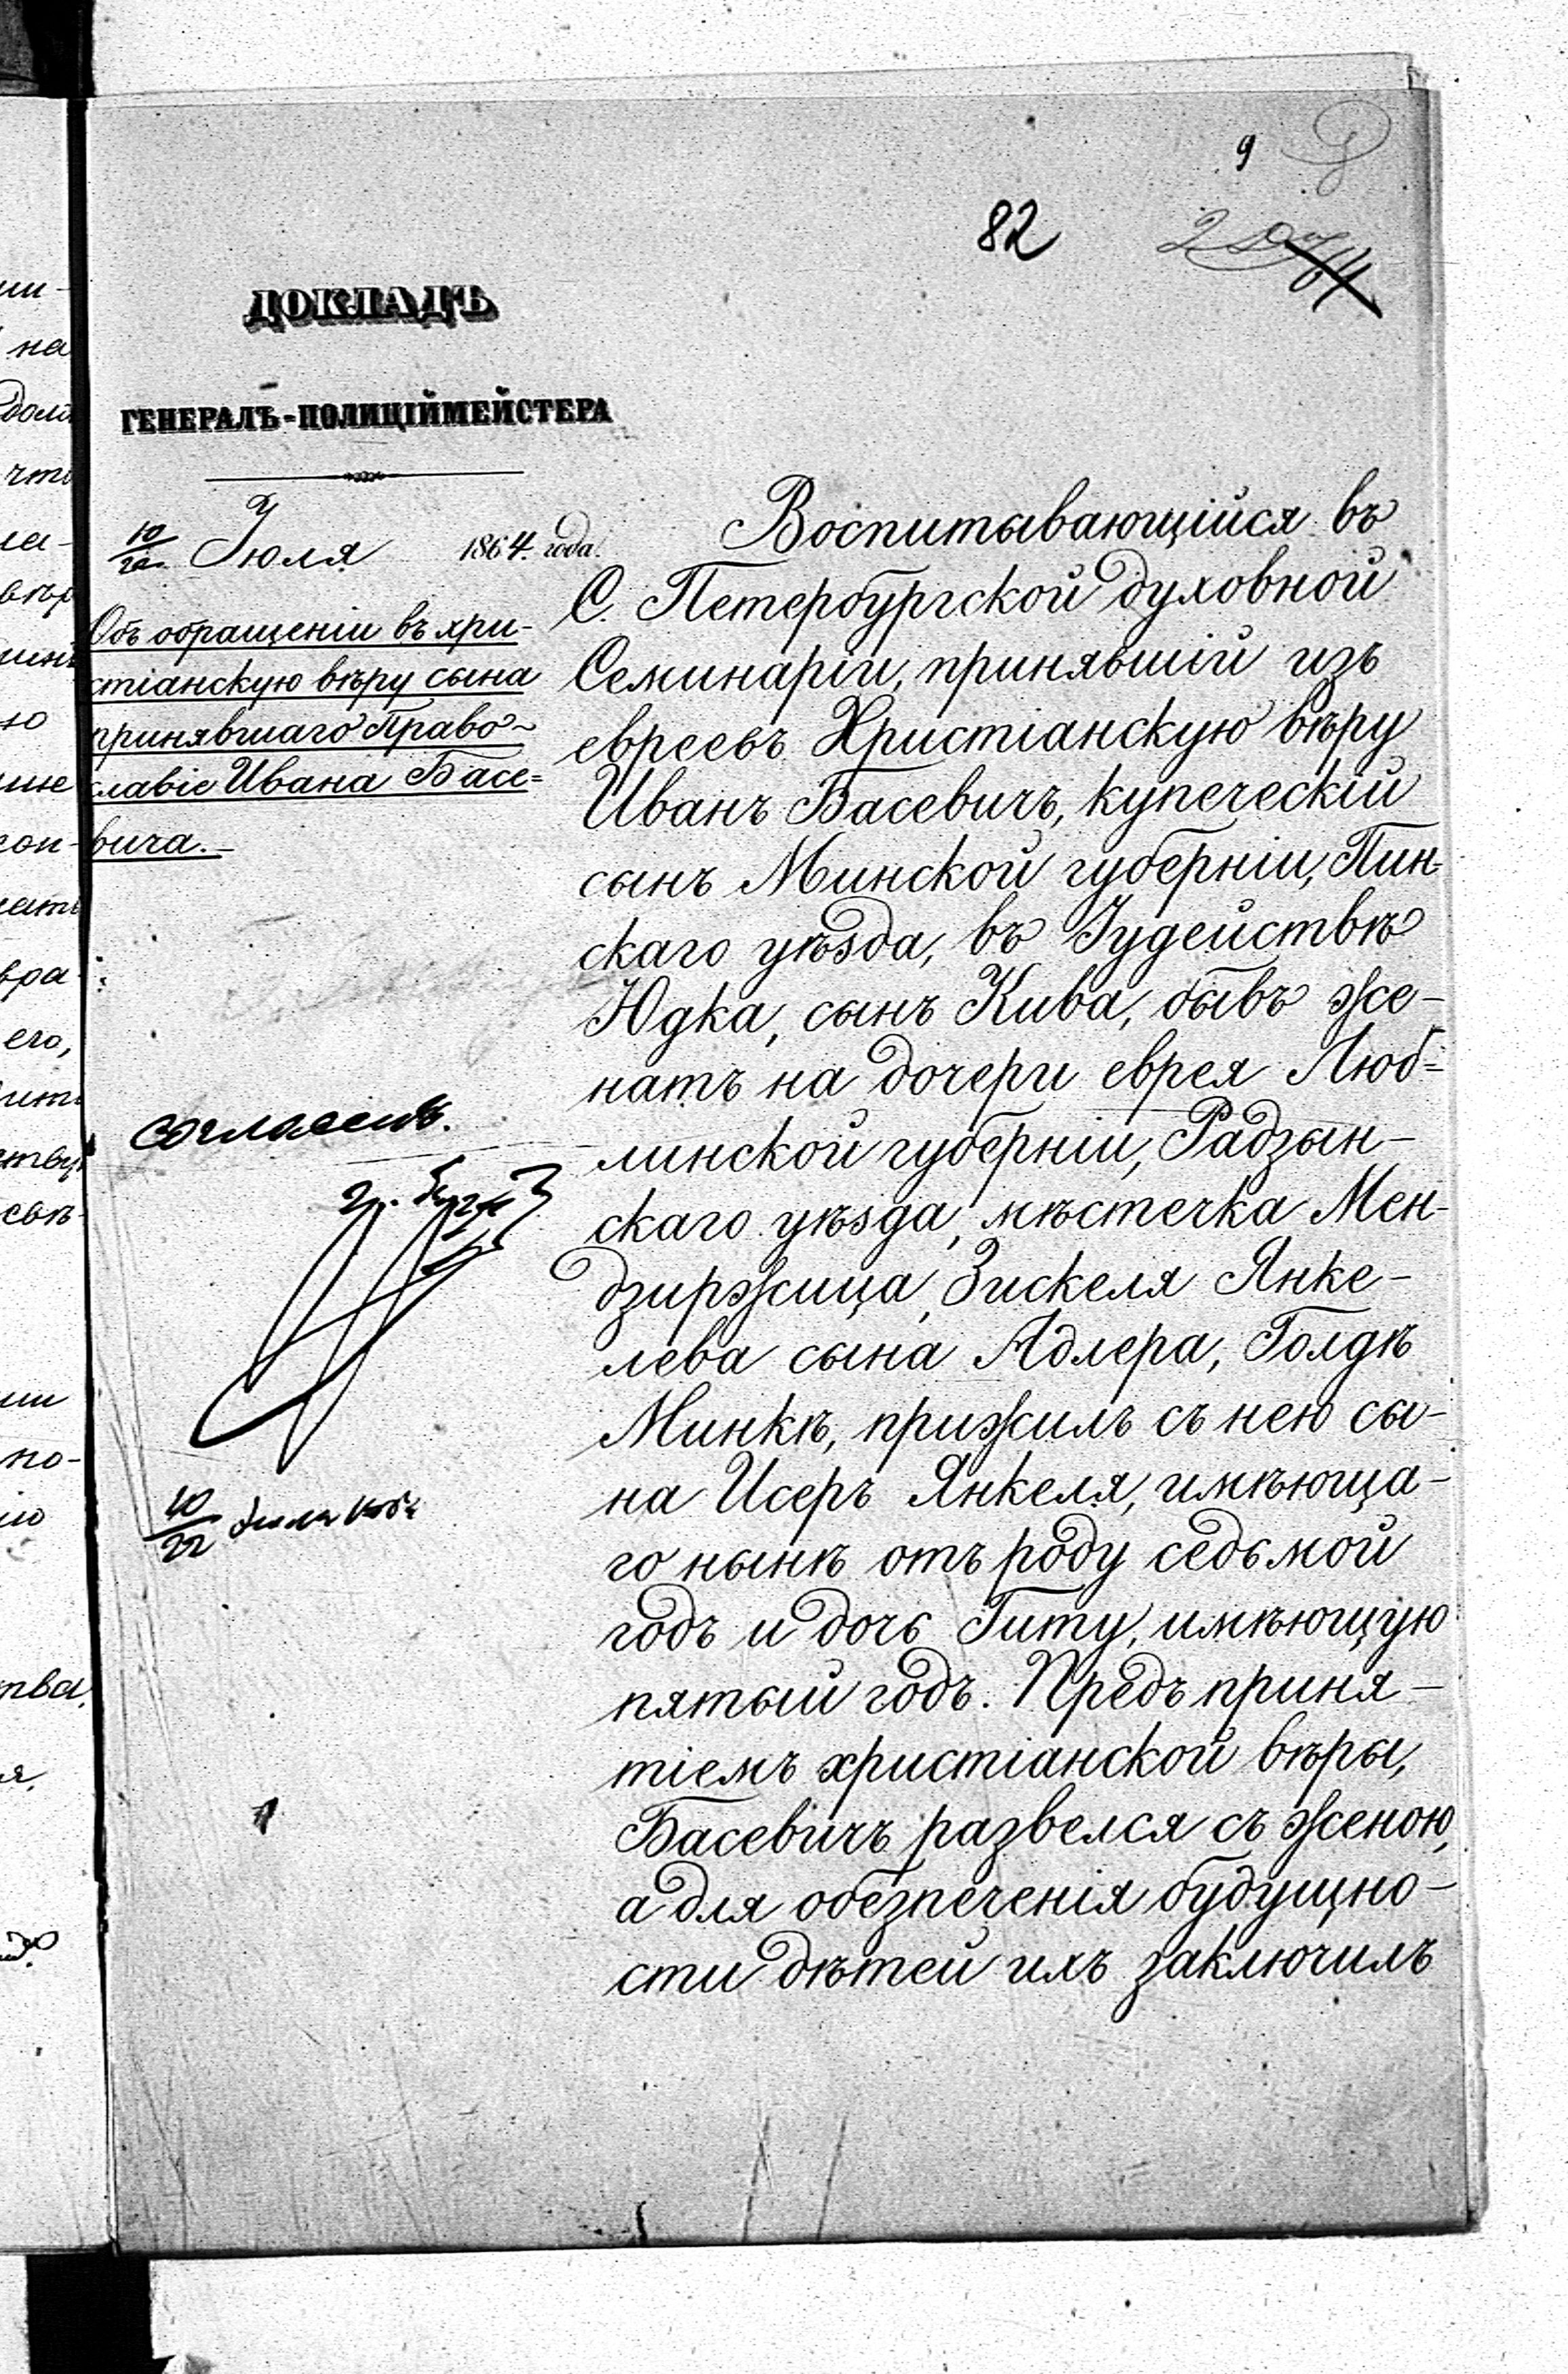 9
82
ДОКЛАДЪ
ГЕНЕРАЛЪ-ПОЛИЦІЙМЕЙСТЕРА
10/22 Іюля 1864 года.
Объ обращеніи въ хри-
стіанскую вѣру сына
принявшаго Право-
славіе Ивана Басе=
вича.-
Согласенъ.
10/22
Воспитывающійся въ
С. Петербургской духовной
Семинаріи, принявшій изъ
евреевъ Христіанскую вѣру
Иванъ Басевичъ, купеческій
сынъ Минской губерніи, Пин-
скаго уѣзда, въ Іудействѣ
Юдка, сынъ Кива, бывъ же-
натъ на дочери еврея Люб=
линской губерніи, Радзын-
скаго уѣзда, мѣстечка Мен-
дзиржица, Зискеля Янке-
лева сына Адлера, Голдѣ
Минкѣ, прижилъ съ нею сы-
на Исеръ Янкеля, имѣюща-
го нынѣ отъ роду седьмой
годъ и дочь Гиту, имѣющую
пятый годъ. Предъ приня-
тіемъ христіанской вѣры,
Басевичъ развелся съ женою,
а для обезпеченія будущно-
сти дѣтей ихъ заключилъ